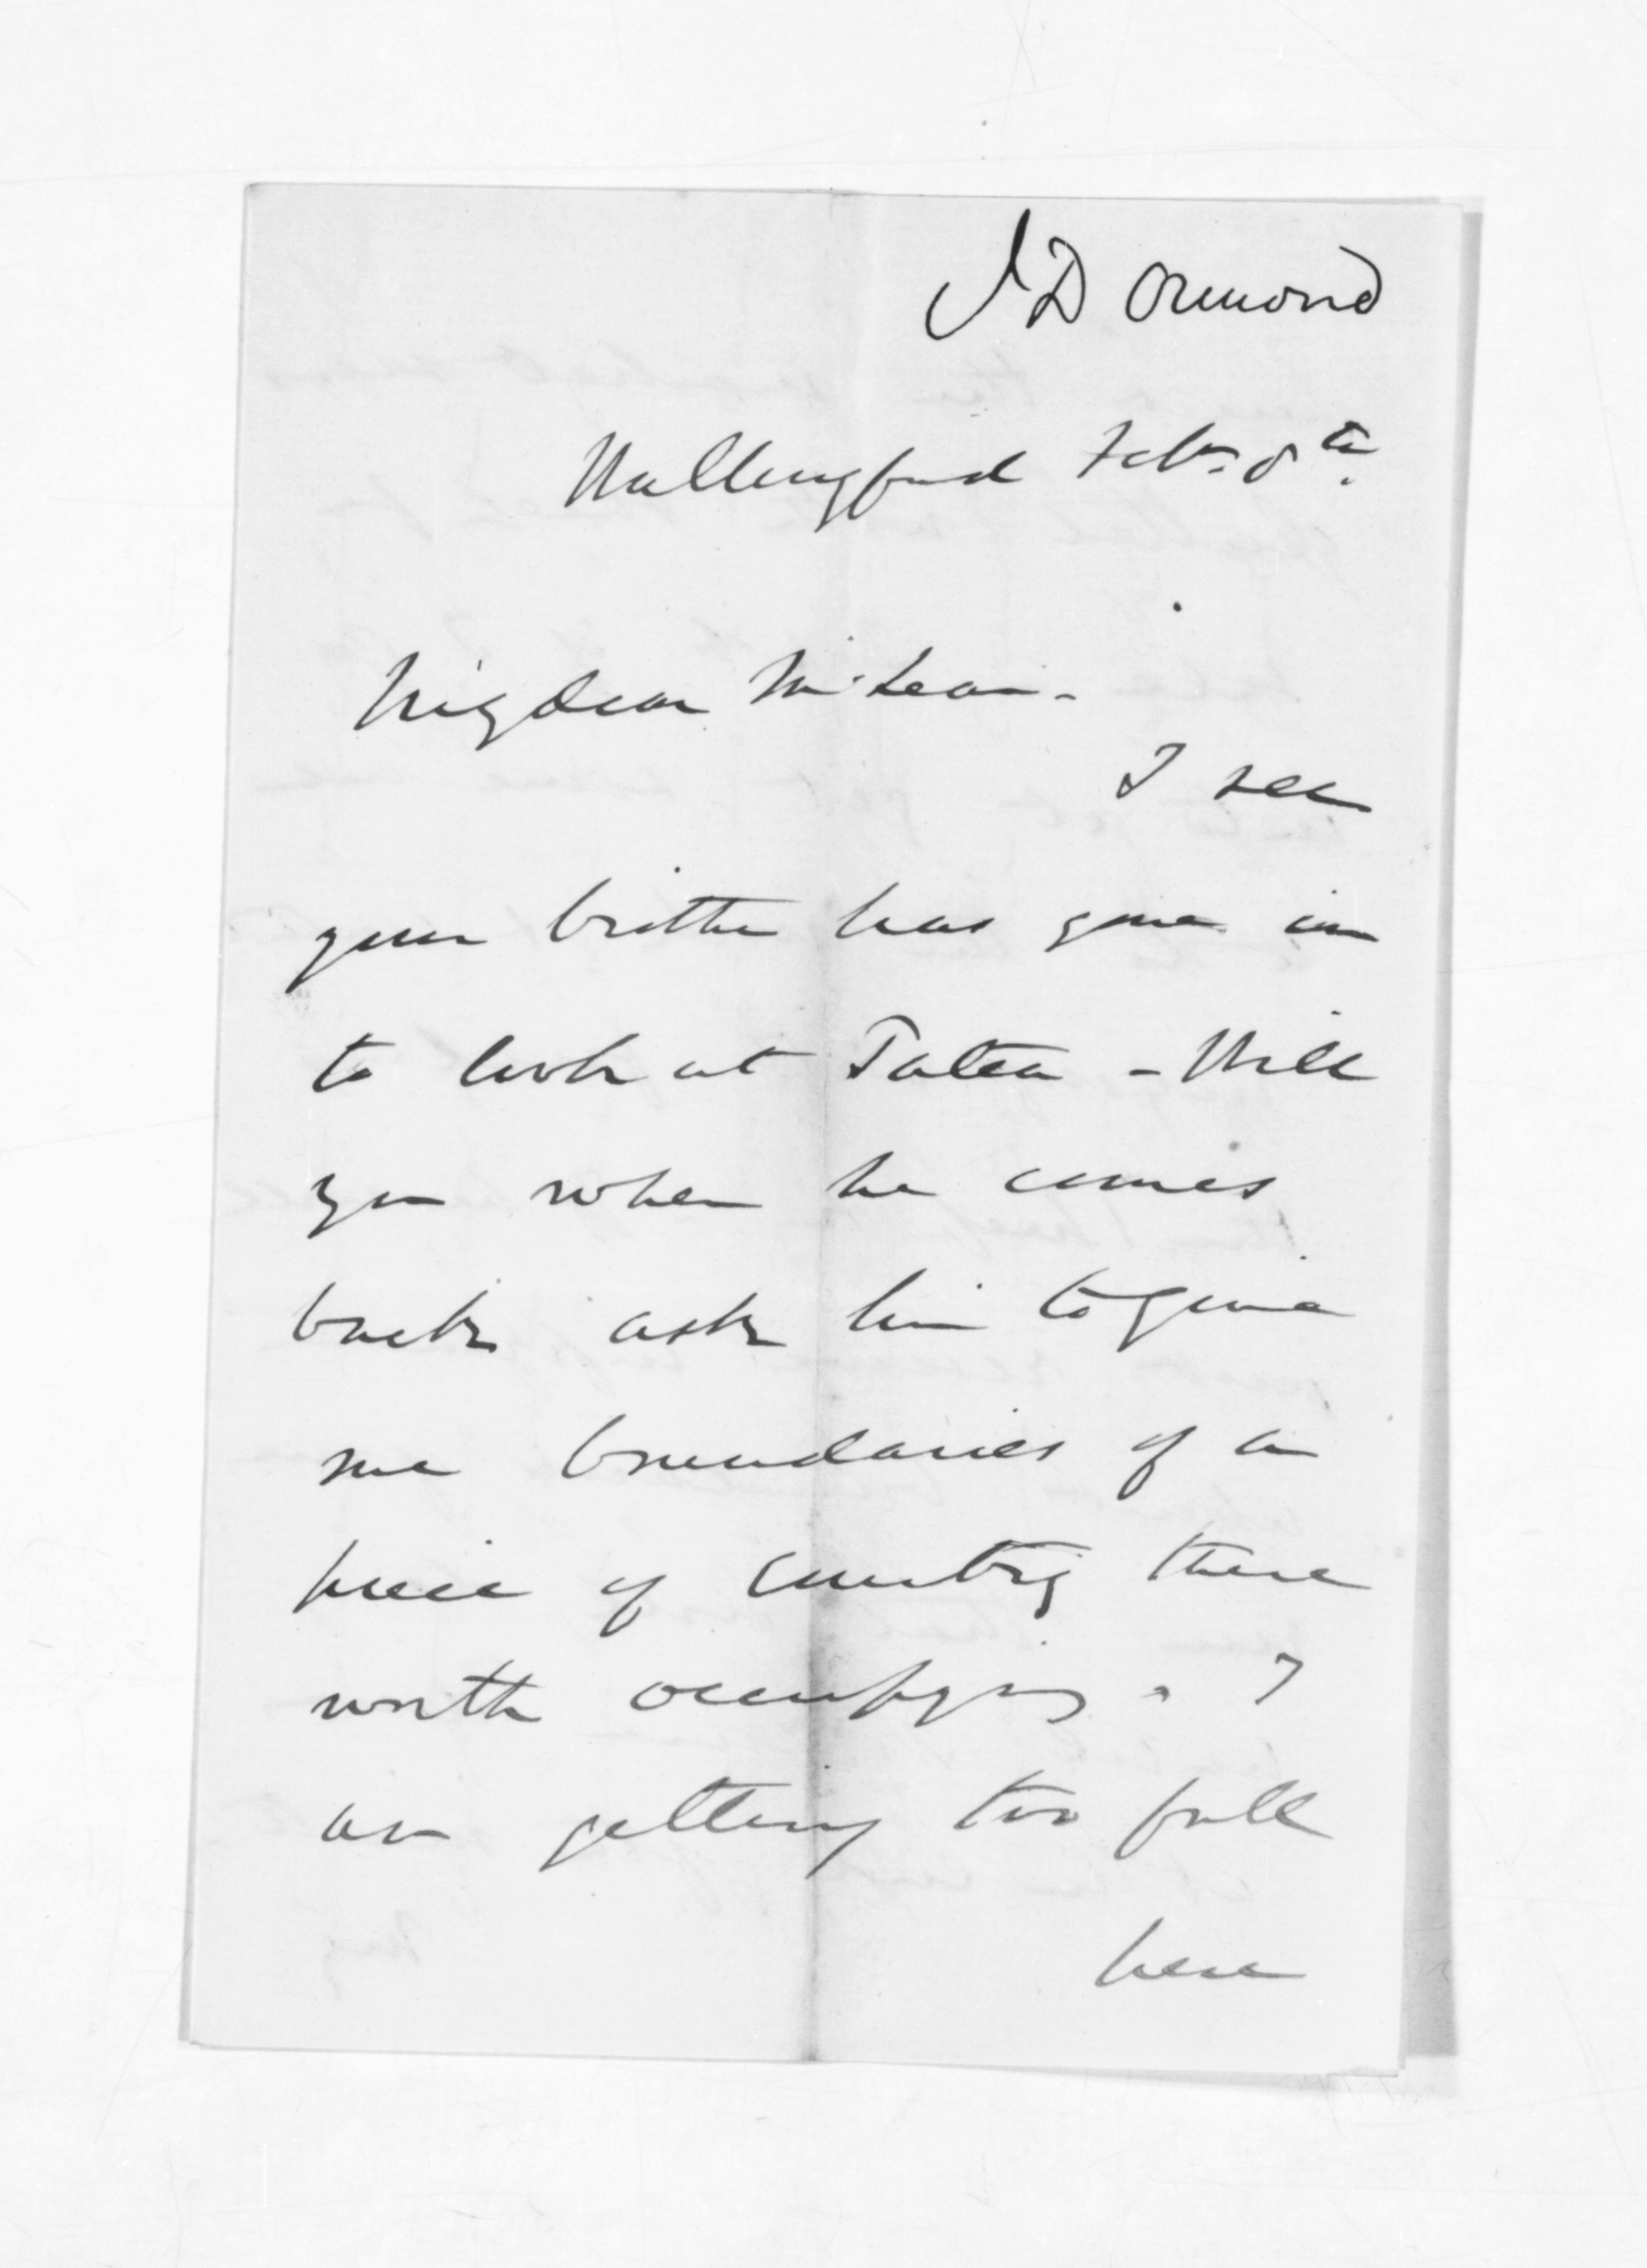 J D Ormond
Wallingford Feby. 8th.
My dear McLean -
I see
your brother has gone in
to look at Tatea - Will
you when he comes
back ask him to give
me boundaries of a
piece of country there
worth occupying. I
am getting too full
here